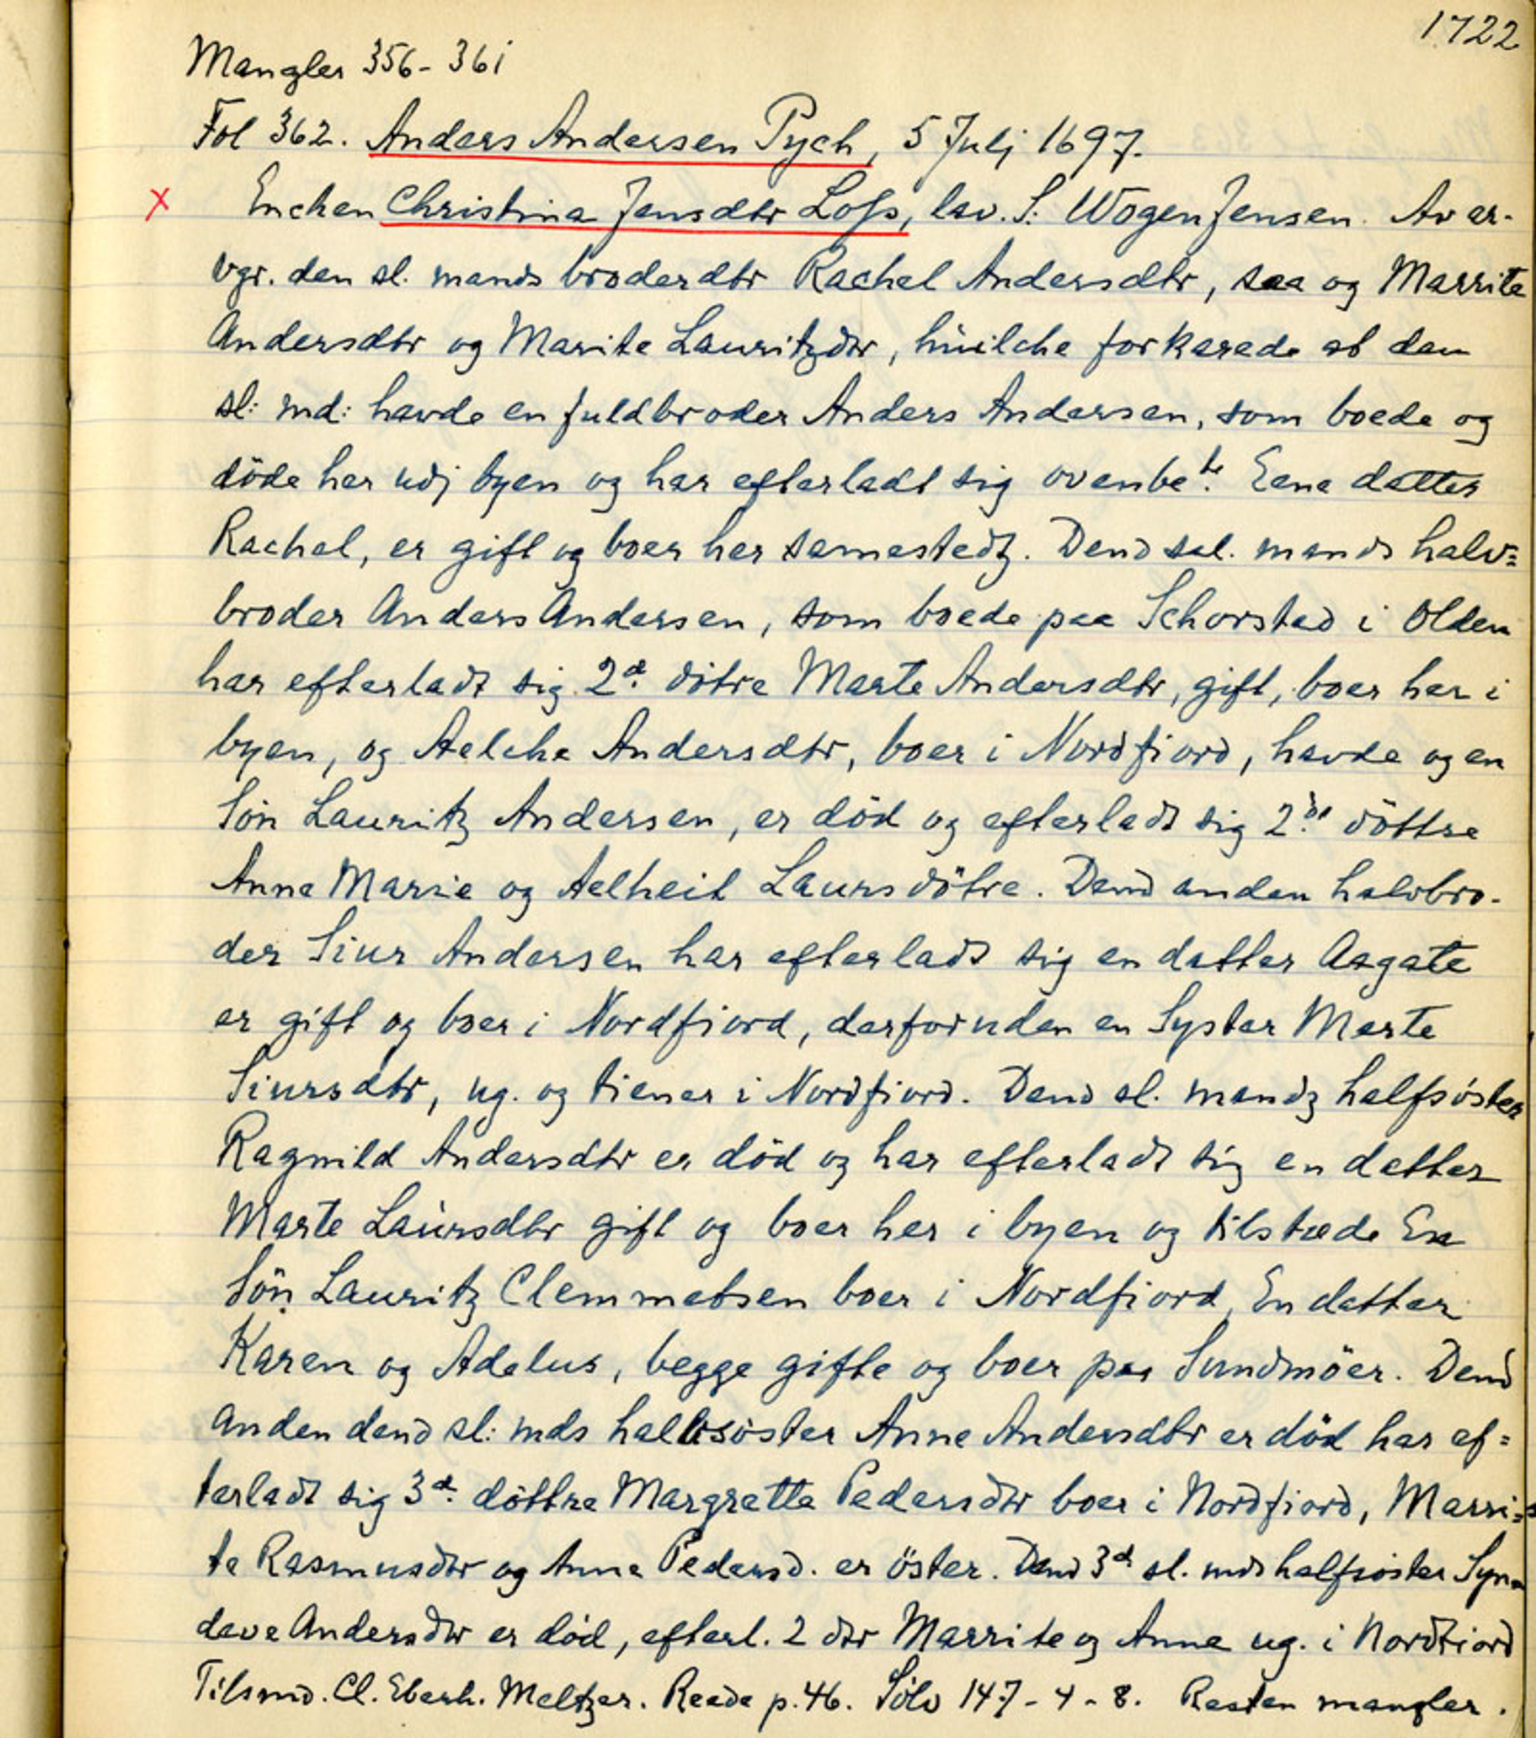 1722
Mangler 356 - 361
Fol 362. Anders Andersen Pych, 5 Julj 1697.
x Enchen Christina Jensdtr Loss, lav. S: Wogen Jensen. Av ar-
vgr. den sl. mands broderdtr Rachel Andersdtr, saa og Marrite
Andersdtr og Marite Lauritzdtr, huilche forkarede at den
sl: md: havde en fuldbroder Anders Andersen, som boede og
döde her udj byen og har efterladt sig ovenbete. Eene datter
Rachel, er gift og boer her samestedtz. Dend sal. mands halv=
broder Anders Andersen, som boede paa Schorstad i Olden
har efterladt sig 2de. dötre Marte Andersdtr, gift, boer her i
byen, og Aelche Andersdtr, boer i Nordfiord, havde og en
Sön Lauritz Andersen, er död og efterladt sig 2de döttre
Anne Marie og Aelheit Laursdötre. Dend anden halvbro-
der Siur Andersen har efterladt sig en datter Aagate
er gift og boer i Nordfiord, derforuden en Syster Marte
Siursdtr, ug. og tiener i Nordfiord. Dend sl. mandz halfsöster
Ragnild Andersdtr er död og har efterladt sig en datter
Marte Laursdtr gift og boer her i byen og tilstæde En
Sön Lauritz Clemmetsen boer i Nordfiord, En datter
Karen og Adelus, begge gifte og boer paa Sundmöer. Dend
anden dend sl: mds halvsöster Anne Andersdtr er död har ef=
terladt sig 3de. döttre Margrette Pedersdtr boer i Nordfiord, Marri=
te Rasmusdtr og Anne Pedersd. er öster. Dend 3de sl. mds halfsöster Syn=
deve Andersdtr er död, efterl. 2 dtr Marrite og Anne ug. i Nordfiord
Tilsmd. Cl. Eberh. Meltzer. Reede p. 46. Sölv 147 - 4 - 8. Resten mangler.